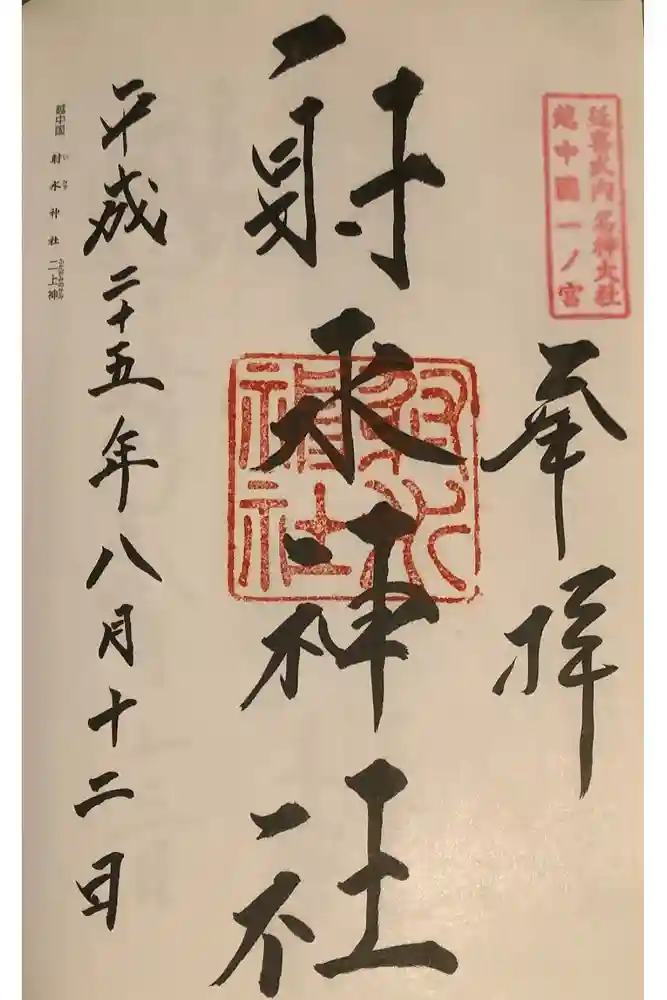 延喜式内 名神大社
越中國一ノ宮
奉拝
射水神社
射水神社
平成二十五年八月十二日
越中国 射水神社 二上神
いみず ふたがみのかみ